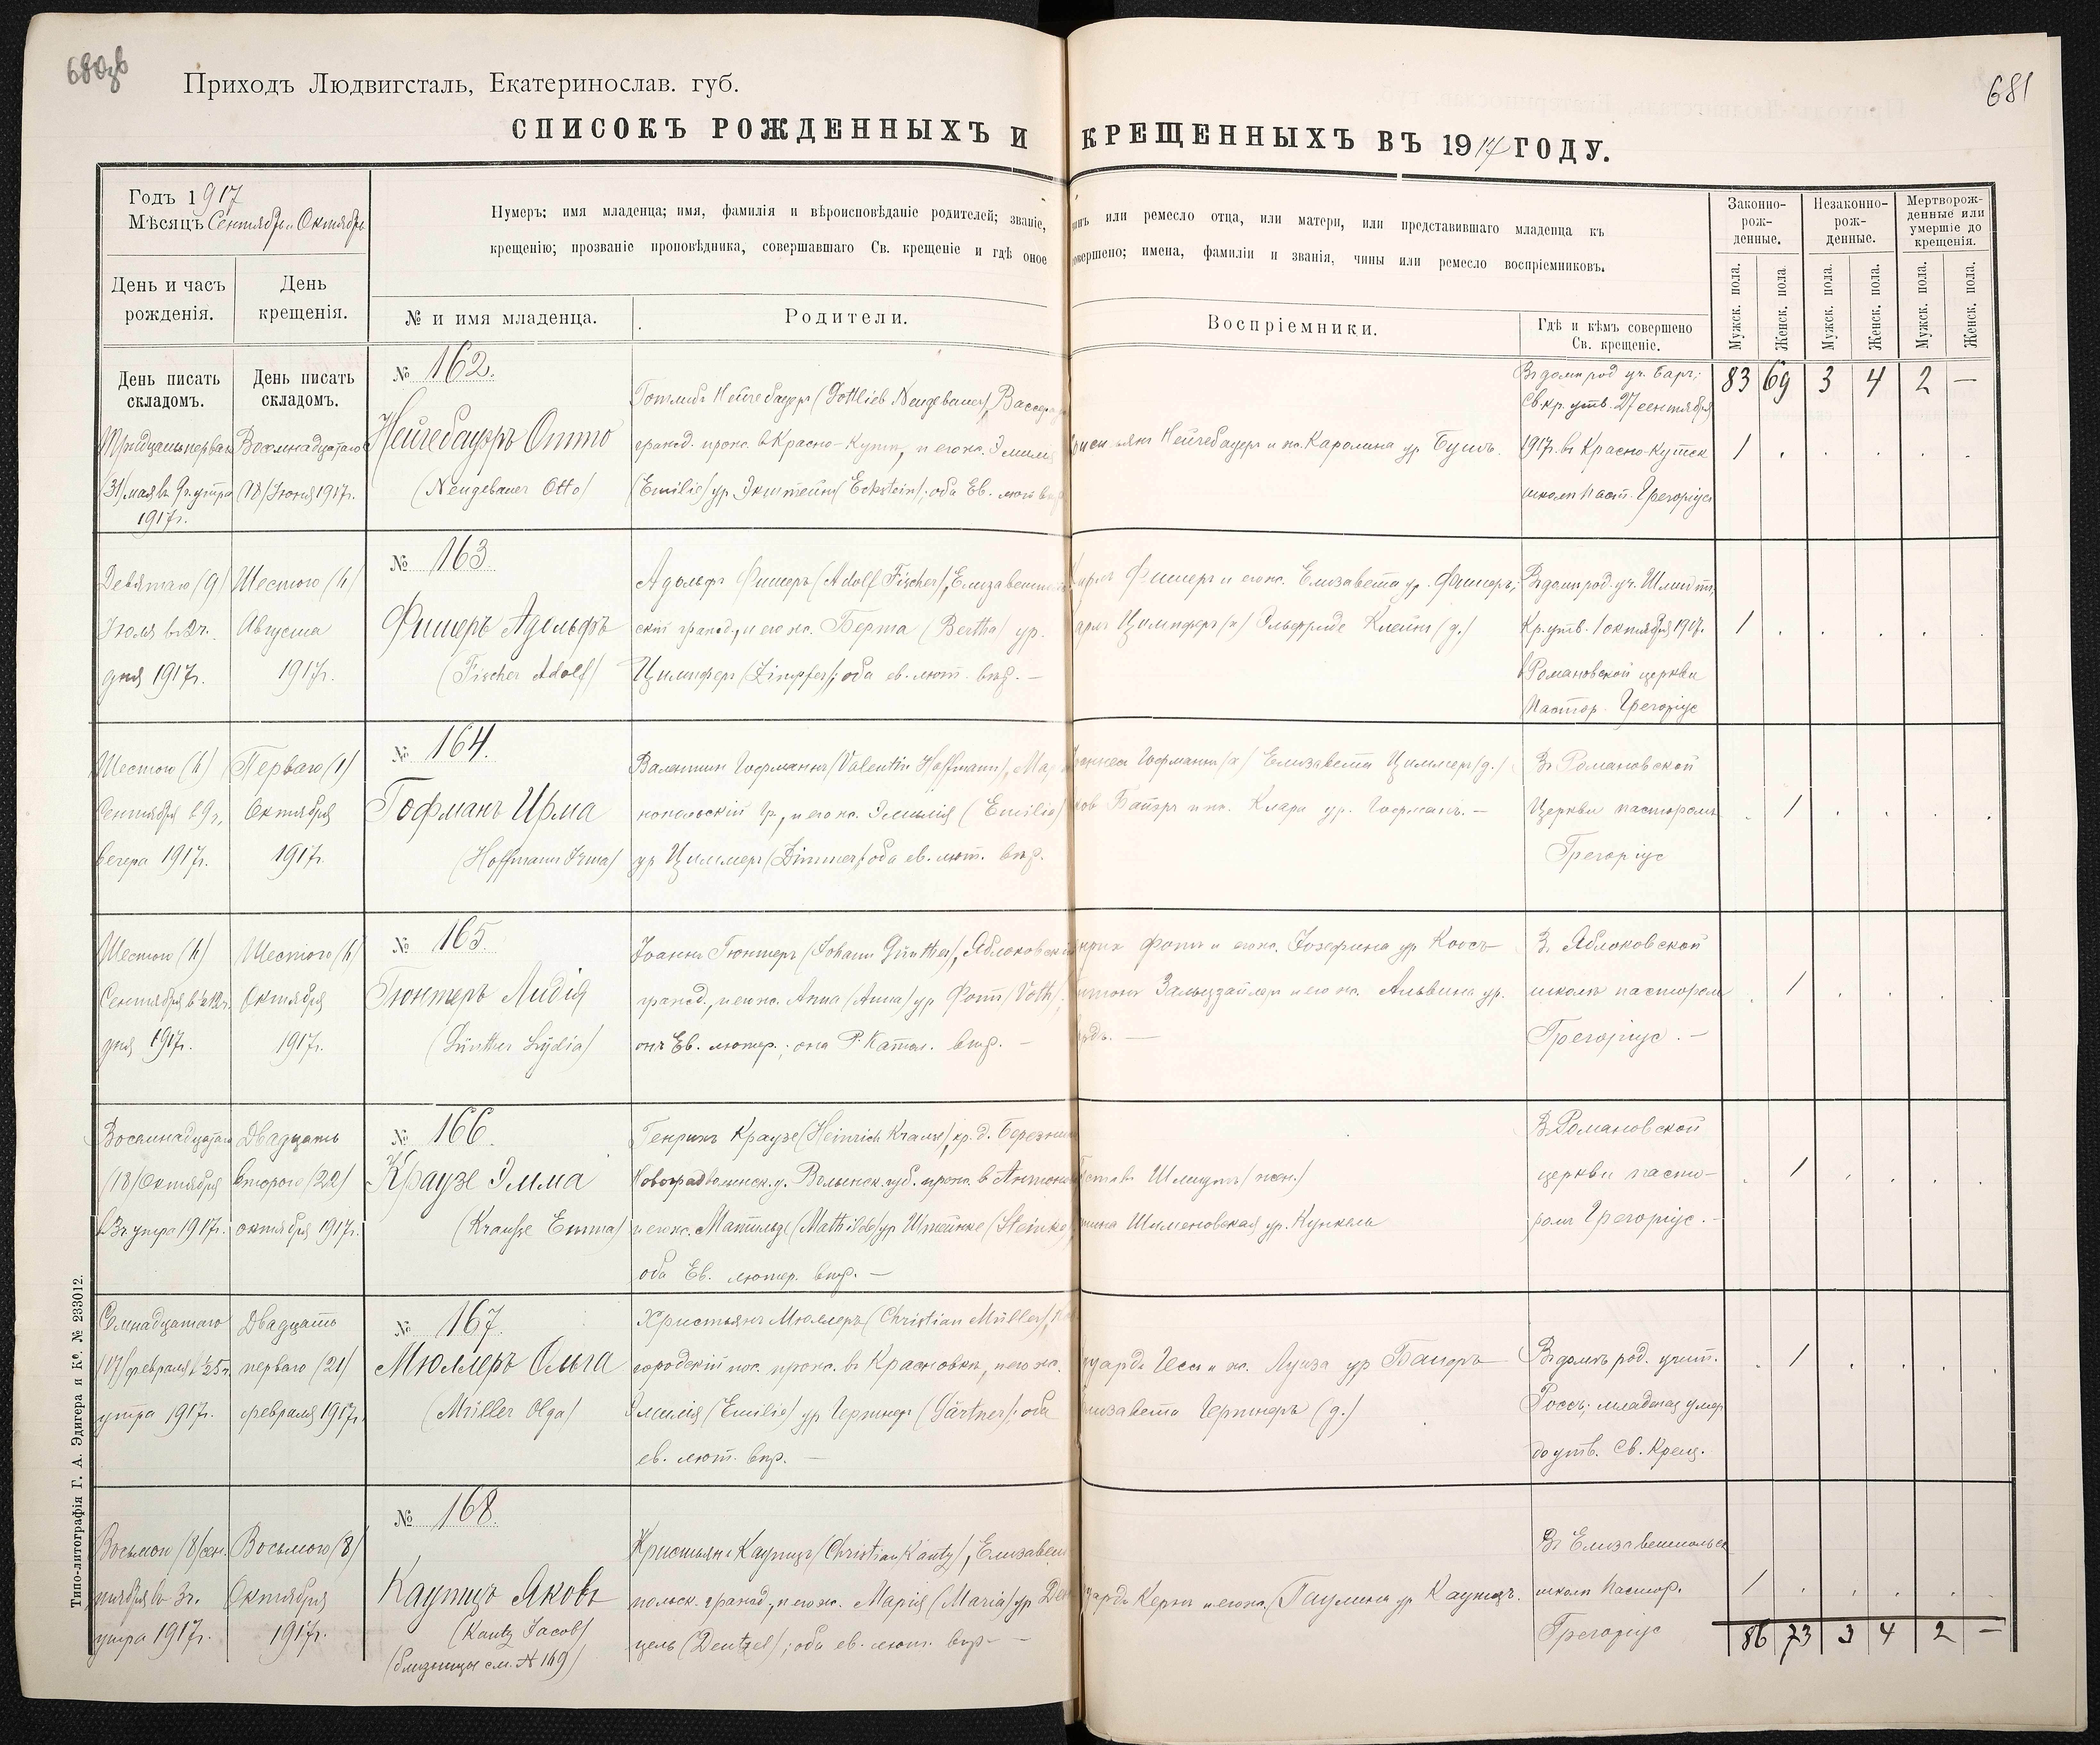 680об
681
Приходъ Людвигсталь, Екатеринослав. губ.
СПИСОКЪ РОЖДЕННЫХЪ И КРЕЩЕННЫХЪ ВЪ 1917 ГОДУ.
Годъ 1917
Мѣсяцъ Сентябрь и Октябрь
Нумеръ: имя младенца; имя, фамилія и вѣроисповѣданіе родителей; званіе, чинъ или ремесло отца, или матери, или представившаго младенца къ
крещенію; прозваніе проповѣдника, совершавшаго Св. крещеніе и гдѣ оное совершено; имена, фамиліи и званія, чины или ремесло воспріемниковъ.
Законно-
рож-
денные.
Незаконно-
рож-
денные.
Мертворож-
денные или
умершіе до
крещенія.
День и часъ
рожденія.
День
крещенія.
№ и имя младенца.
Родители.
Воспріемники.
Гдѣ и кѣмъ совершено
Св. крещеніе.
Мужск. пола.
Женск. пола
Мужск. пола.
Женск. пола.
Мужск. пола.
Женск. пола.
День писать
складомъ.
День писать
складомъ.
83 69 3 4 2 —
№ 162.
Тридцать первого
(31) мая в 9 ч. утра
1917г.
Восемнадцатого
(18) Іюня 1917г.
Нейгебауеръ Отто
(Neugebauer Otto)
Готлибъ Нейгебауеръ (Gottlieb Neugebauer),
гранод. прож. в Красно-Кутѣ, и его ж. Эмилія
(Emilie) ур. Экштейнъ (Eckstein); оба Ев. лют. впд.
Нейгебауеръ и ж. Каролина ур. Бушъ.
Въ домѣ род. уч. Барч;
Св. кр. утв. 27 сентября
1917г. въ Красно-Кутск
школѣ Паст. Грегоріус
1
№ 163
Девятого (9)
Іюля в 2 ч.
дня 1917г.
Шестого (6)
Августа
1917г.
Фишеръ Адольфъ
(Fischer Adolf)
Адольфъ Фишеръ (Adolf Fischer), Елизаветполь
скій гранод., и его ж. Берта (Bertha) ур.
Цимпферъ (Zimpfer); оба ев. лют. впд. —
Карлъ Фишеръ и его ж. Елизавета ур. Фишеръ;
Карлъ Цимпферъ (х) Эльфриде Клейнъ (д.)
Въ домѣ род. уч. Шмидт,
Кр. утв. 1 октября 1917.
в Романовской церкви
Пастор. Грегоріус
1
№ 164.
Шестого (6)
Сентября в 9 ч.
вечера 1917г.
Перваго (1)
Октября
1917г.
Гофманъ Ирма
(Hoffmann Irma)
Валентинъ Гофманнъ (Valentin Hoffmann), Марія
нопольскій гр., и его ж. Эмилія (Emilie)
ур. Циммеръ (Zimmer); оба ев. лют. впд.
Гофманнъ (х) Елизавета Циммеръ (д.)
Бауеръ и ж. Клара ур. Гофманъ. —
Въ Романовской
Церкви пасторомъ
Грегоріус
1
№ 165.
Шестого (6)
Сентября в ½ 12 ч.
дня 1917г.
Шестого (6)
Октября
1917г.
Гюнтеръ Лидія
(Günther Lydia)
Іоаннъ Гюнтеръ (Johann Günther), Яблоковскій
гранод., и его ж. Анна (Anna) ур. Фотъ (Voth);
онъ Ев. лютер.; она Р. Катол. впд. —
Фотъ и его ж. Іозефина ур. Коосъ
Зальцзайлеръ и его ж. Альвина ур.
Въ Яблоковской
школѣ пасторомъ
Грегоріус. —
1
№ 166.
Восемнадцатаго
(18) Октября
в 3 ч. утра 1917г.
Двадцать
второго (22)
октября 1917г.
Краузе Эмма
(Krauße Emma)
Генрихъ Краузе (Heinrich Krauße), кр. д. Березники
Новоградволынск. у. Волынск. губ. прож. в Антонов
и его ж. Матильде (Mathilde) ур. Штейнке (Steinke)
оба Ев. лютер. впд. —
Густавъ Шмидтъ (жен.)
Шимановская ур. Кункель
Въ Романовской
церкви пасто-
ромъ Грегоріус. —
1
№ 167.
Семнадцатого
(17) февраля в ½ 5 ч.
утра 1917г.
Двадцать
перваго (21)
февраля 1917г.
Мюллеръ Ольга
(Müller Olga)
Христьянъ Мюллеръ (Christian Müller), Нов
городскій пос. прож. въ Красновкѣ, и его ж.
Эмилія (Emilie) ур. Гертнеръ (Gärtner); оба
ев. лют. впд. —
Эдуардъ Гессъ и ж. Луиза ур. Бауеръ
Елизавета Гертнеръ (д.)
Въ домѣ род. учит.
Россъ; младенец умер
до утв. Св. Крещ.
1
№ 168.
Восьмого (8) сен-
тября в 3 ч.
утра 1917г.
Восьмого (8)
Октября
1917г.
Каутцъ Яковъ
(Kautz Jacob)
(близнецы см. № 169)
Христьянъ Каутцъ (Christian Kautz), Елизавет
польск. гранод., и его ж. Марія (Maria) ур. Ден
цель (Dentzel); оба ев. лют. впд. —
Эдуардъ Кернъ и его ж. Паулина ур. Каутцъ.
Въ Елизаветпольск
школѣ Пастор.
Грегоріус
1
86 73 3 4 2 —
Типо-литографія Г. А. Эдигера и Ко. № 233012.